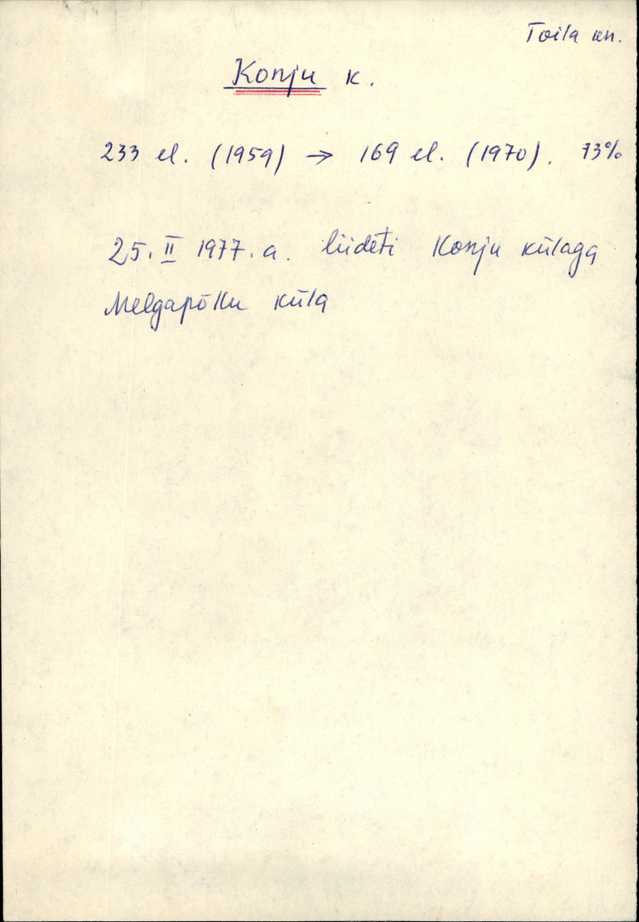 Toila kn.
Konju k.
233 el. (1959) → 169 el. (1970). 73%
25. II 1977. a. liideti Konju külaga
Melgapõllu küla